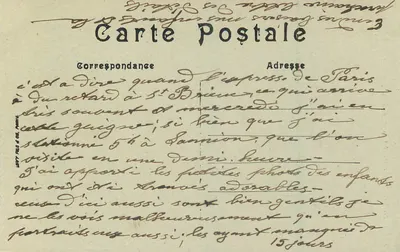 Carte Postale
Correspondance
Adresse
c'est à dire quand l'express de Paris
a du retard à St Brieuc, ce qui arrive
très souvent et mercredi j'ai eu
cette guigne; si bien que j'ai
stationné 5h à Lannion, que l'on
visite en une demi-heure—
J'ai apporté les petites photos des enfants
qui ont été trouvés adorables—
ceux d'ici aussi sont bien gentils je
ne les vois malheureusement qu'en
portraits eux aussi, les ayant manqués de
15 jours